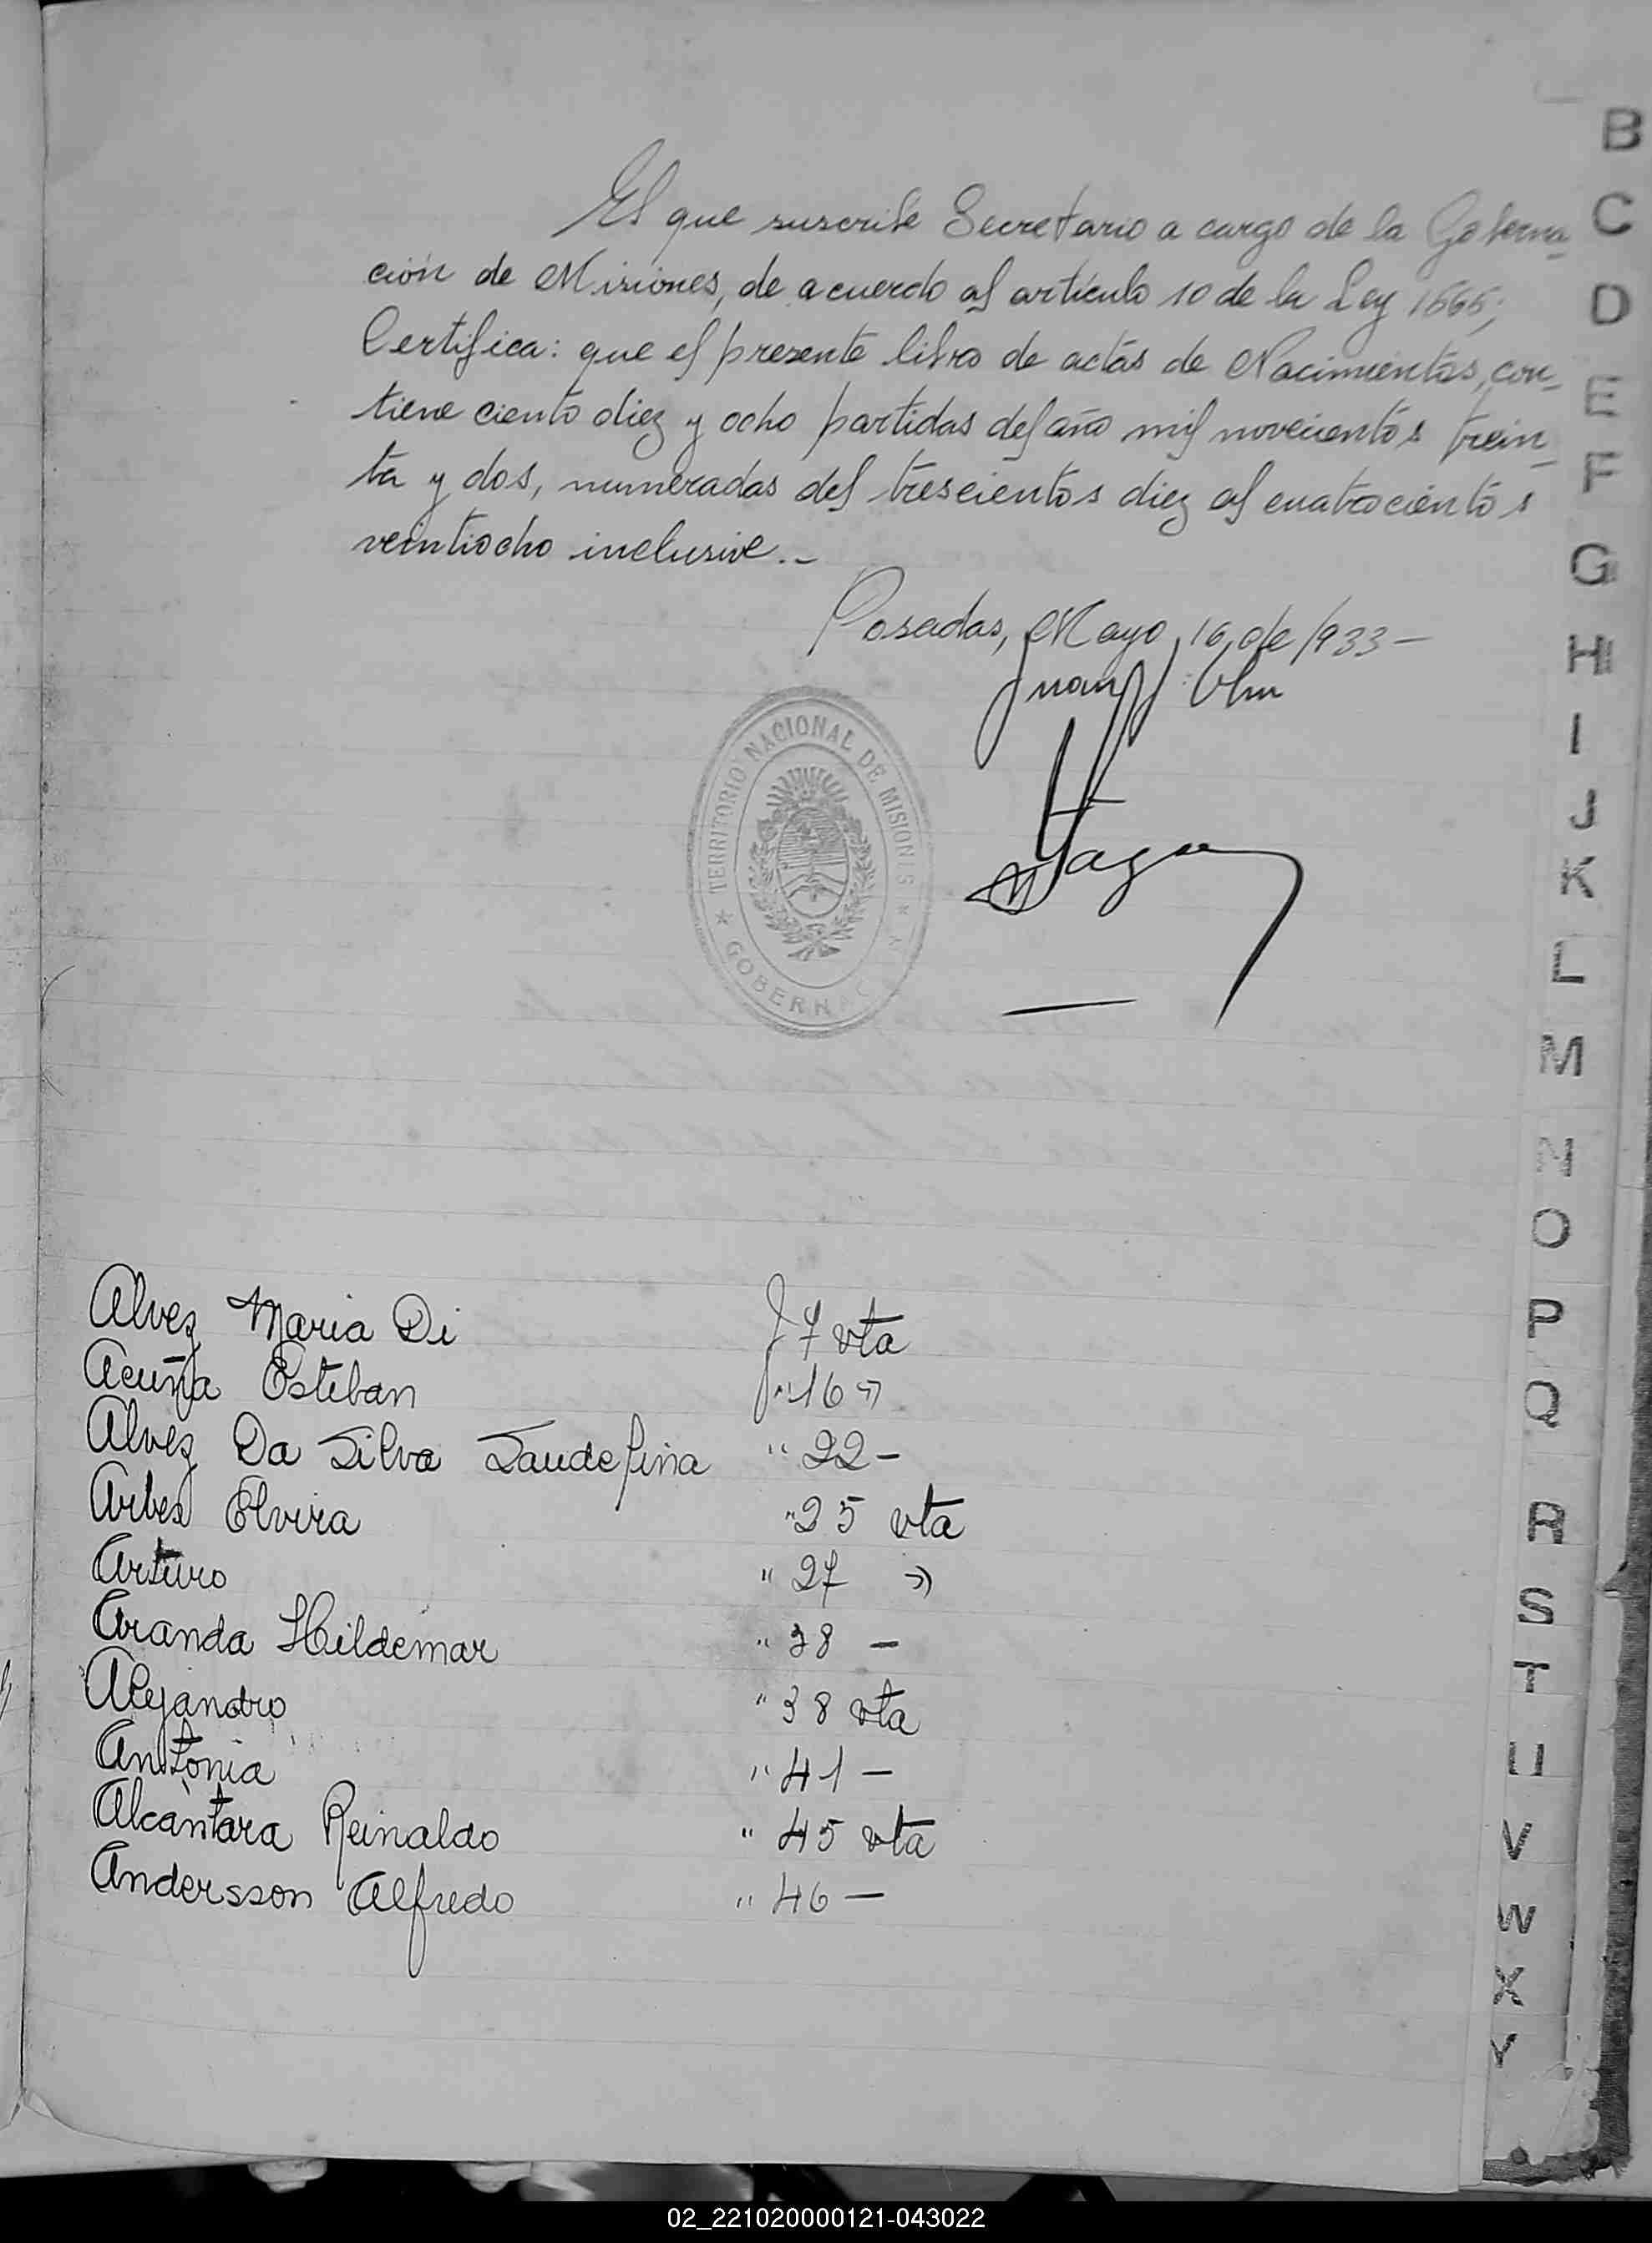 El que suscribe Secretario a cargo de la Goberna-
ción de Misiones, de acuerdo al artículo 10 de la Ley 1565;
Certifica: que el presente libro de actas de Nacimientos, con-
tiene ciento diez y ocho partidas del año mil novecientos trein-
ta y dos, numeradas del trescientos diez al cuatrocientos
veintiocho inclusive.-
Posadas, Mayo 16, de 1933-
TERRITORIO NACIONAL DE MISIONES
GOBERN
Alvez Maria Di f 7 vta
Acuña Esteban " 16 "
Alvez Da Silva Laudelina " 22 -
Elvira " 25 vta
Arturo " 27 "
Aranda Hildemar " 38 -
Alejandro " 38 vta
Antonia " 41 -
Alcántara Reinaldo " 45 vta
Andersson Alfredo " 46 -
B
C
D
E
F
G
H
I
J
K
L
M
N
O
P
Q
R
S
T
U
V
W
X
Y
02_221020000121-043022